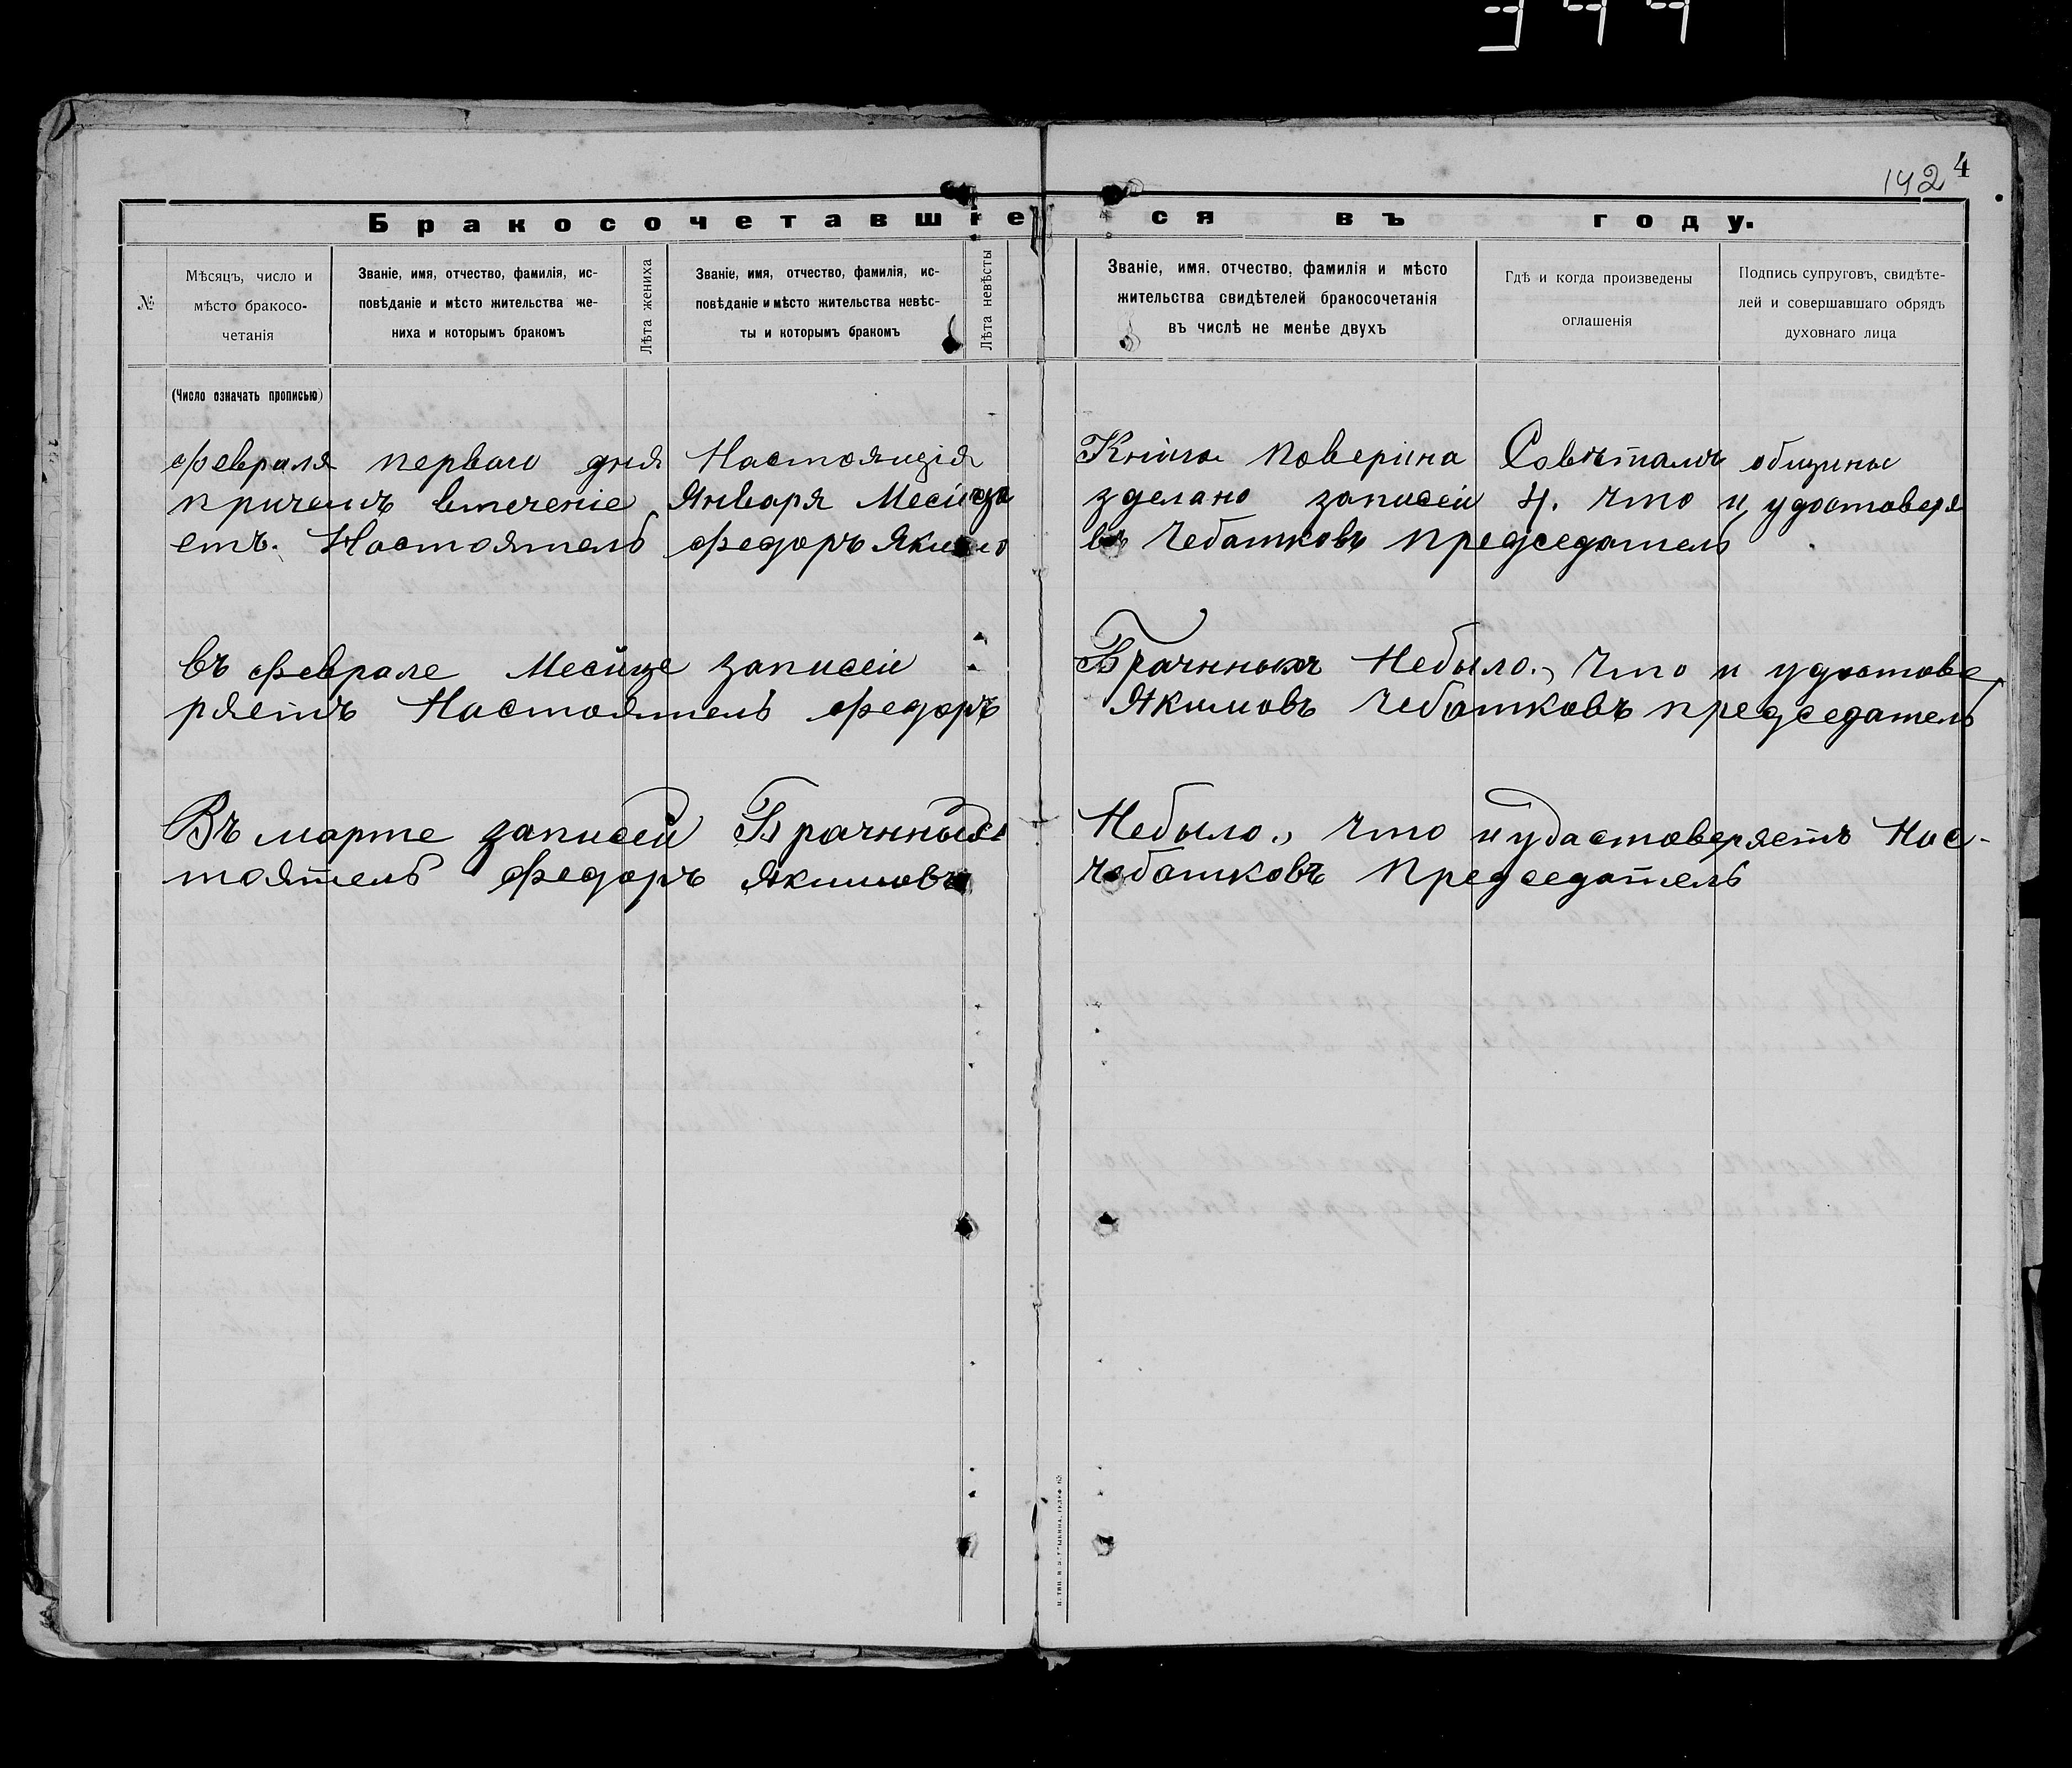 142 4
Бракосочетавшіеся въ году.
№
Мѣсяцъ, число и
мѣсто бракосо-
четанія
Званіе, имя, отчество, фамилія, ис-
повѣданіе и мѣсто жительства же-
ниха и которымъ бракомъ
Лѣта жениха
Званіе, имя, отчество, фамилія, ис-
повѣданіе и мѣсто жительства невѣс-
ты и которымъ бракомъ
Лѣта невѣсты
Званіе, имя, отчество, фамилія и мѣсто
жительства свидѣтелей бракосочетанія
въ числѣ не менѣе двухъ
Гдѣ и когда произведены
оглашенія
Подпись супруговъ, свидѣте-
лей и совершавшаго обрядъ
духовнаго лица
(Число означать прописью)
февраля перваго дня Настоящія Книга поверина Совѣтамъ общины
причемъ втеченіе Января Месица зделано записей 4. что и удостоверя
етъ. Настоятель федоръ Якимо въ Чебатковъ председатель
въ феврале Месице записей Брачнныхъ Небыло., что и удостове
ряетъ Настоятель федоръ Якимовъ Чебатковъ председатель
Въ марте записей Брачнныхъ Небыло., что и удастоверяетъ Нас-
тоятель федоръ Якимовъ Чебатковъ председатель